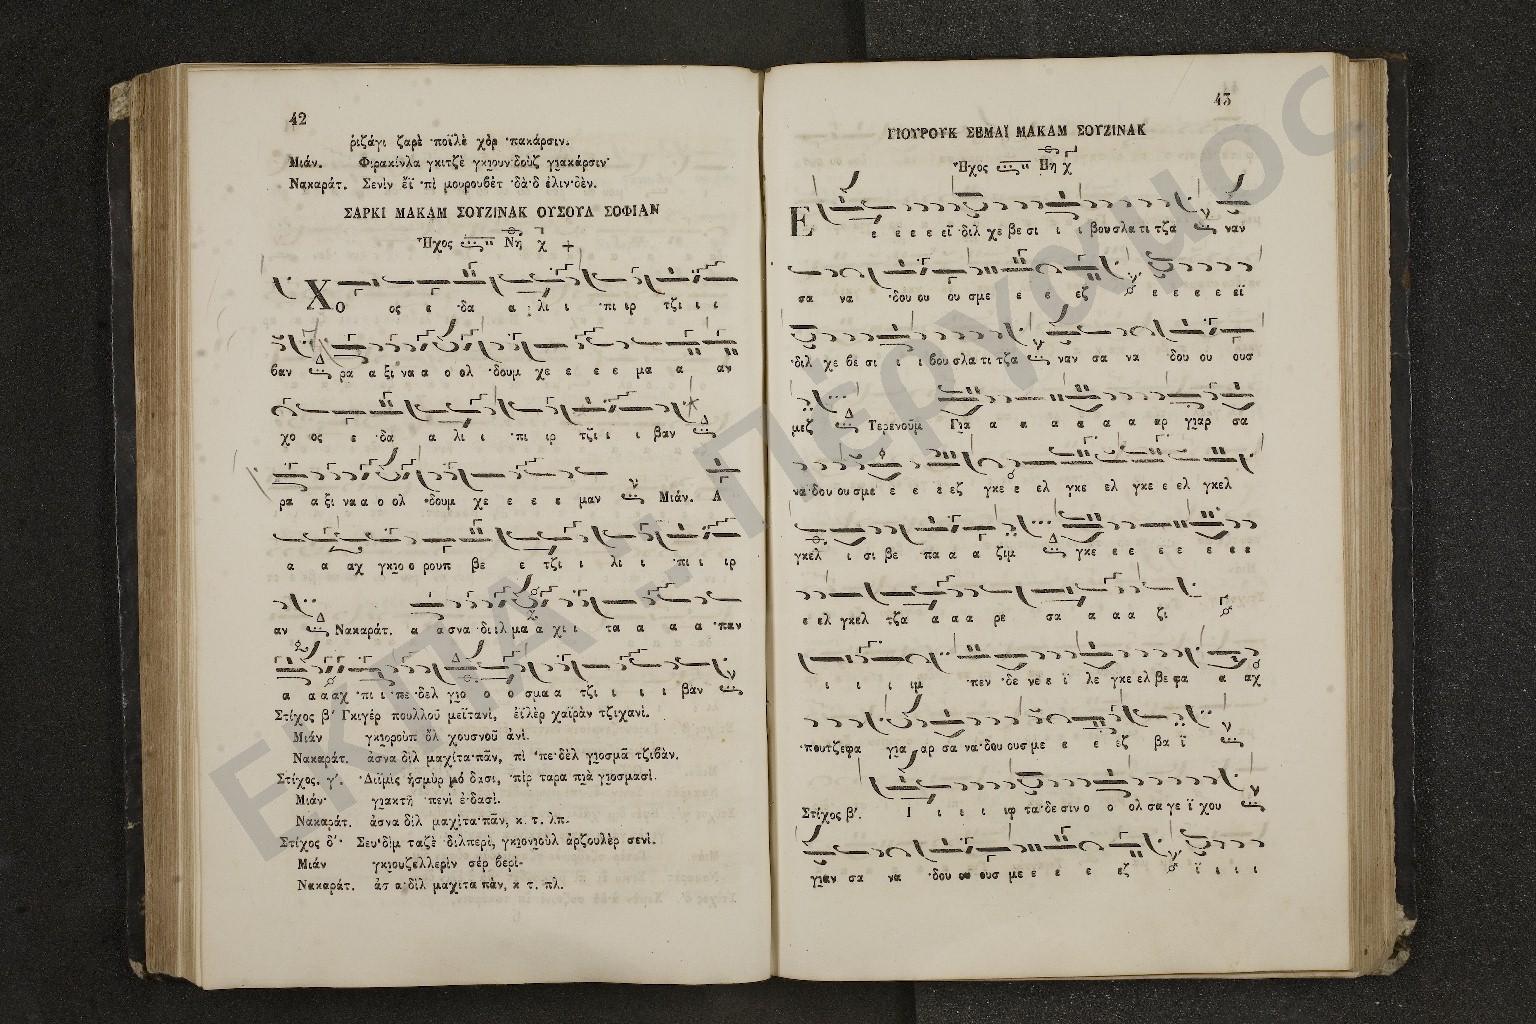 42
ῥιζάγι ζαρὲ ·ποϊλὲ χὸρ ·πακάρσιν.
Μιάν. Φιρακίνλα γκιτζὲ γκιουν·δοὺζ γιακάρσιν·
Νακαράτ. Σενὶν ἔϊ ·πὶ μουρουβέτ ·δὰ·δ ἐλιν·δὲν.
ΣΑΡΚΙ ΜΑΚΑΜ ΣΟΥΖΙΝΑΚ ΟΥΣΟΥΛ ΣΟΦΙΑΝ
Ἦχος Νη
Χο ος ε ·δα α λι ι ·πι ιρ τζι ι ι
βαν ρα α ξι να α ο ολ ·δουμ χε ε ε ε μα α αν
χο ος ε ·δα α λι ι ·πι ιρ τζι ι ι βαν
ρα α ξι να α ο ολ ·δουμ χε ε ε ε μαν Μιάν. Α
α α αχ γκιο ο ρουπ βε ε τζι ι λι ι ·πι ι ιρ
αν Νακαράτ. α ασνα ·δι ιλ μα α χι ι τα α α α ·παν
α α α αχ ·πι ι ·πε ·δελ γιο ο ο σμα α τζι ι ι ι βαν
Στίχος β΄ Γκιγέρ πουλλοῦ μεϊτανὶ, ἐϊλὲρ χαϊρὰν τζιχανὶ.
Μιάν γκιοροὺπ ὅλ χουσνοῦ ἀνὶ.
Νακαράτ. ἀσνα διλ μαχίτα·πᾶν, πὶ ·πε·δὲλ γιοσμᾶ τζιβὰν.
Στίχος. γ΄. ·Διϊμὶς ἡσμὺρ μό δασι, ·πὶρ ταρα πιὰ γιοσμασὶ.
Μιάν· γιακτῆ ·πενὶ ἐ·δασὶ.
Νακαράτ. ἀσνα διλ μαχὶτα·πᾶν, κ. τ. λπ.
Στίχος δ΄· Σευ·δὶμ ταζὲ ·διλπερὶ, γκιονιοὺλ ἀρζουλὲρ σενὶ.
Μιάν γκιουζελλερὶν σέρ βερὶ-
Νακαράτ. ἀσ α·δὶλ μαχιτα πὰν, κ τ. πλ.
43
ΓΙΟΥΡΟΥΚ ΣΕΜΑΪ ΜΑΚΑΜ ΣΟΥΖΙΝΑΚ
Ἦχος Νη
Ε ε ε ε ε εϊ ·διλ χε βε σι ι ι βου σλα τι τζα ναν
σα να ·δου ου ου σμε ε ε ε εζ ε ε ε ε εϊ
·διλ χε βε σι ι ι βου σλα τι τζα ναν σα να ·δου ου ουσ
μεζ Τερενοῦμ Για α α α α α α αρ γιαρ σα
να·δου ου σμε ε ε ε εζ γκε ε ελ γκε ελ γκε ε ελ γκελ
γκελ ι σι βε ·πα α α ζιμ γκε ε ε ε ε ε ε ε
ε ελ γκελ τζα α α α ρε σα α α α ζι
ι ι ι ιμ ·πεν ·δε νε ε ϊ λε γκε ελ βε φα α αχ
·πουτζεφα για αρ σα να·δου ουσ με ε ε εζ βα ϊ
Στίχος β΄. Ι ι ε ι ιφ τα·δε σιν ο ο ολ σα γε ϊ χου
γιαν σα να ·δου ου ουσ με ε ε ε εζ ϊ ι ι ι